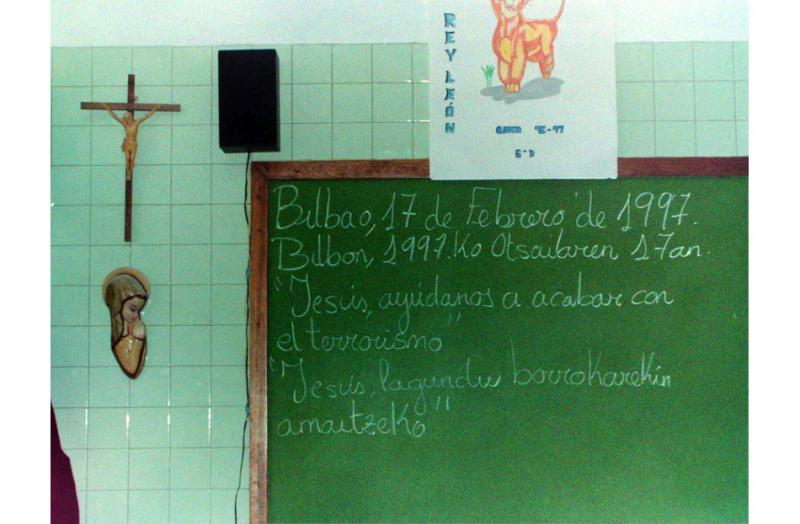 REY LEÓN
CURSO 96-97
6-D
Bilbao, 17 de Febrero de 1997.
Bilbon, 1997.Ko Otsailaren 17an.
"Jesús, ayúdanos a acabar con
el terrorismo"
"Jesús, lagundu borrokarekin
amaitzeko"